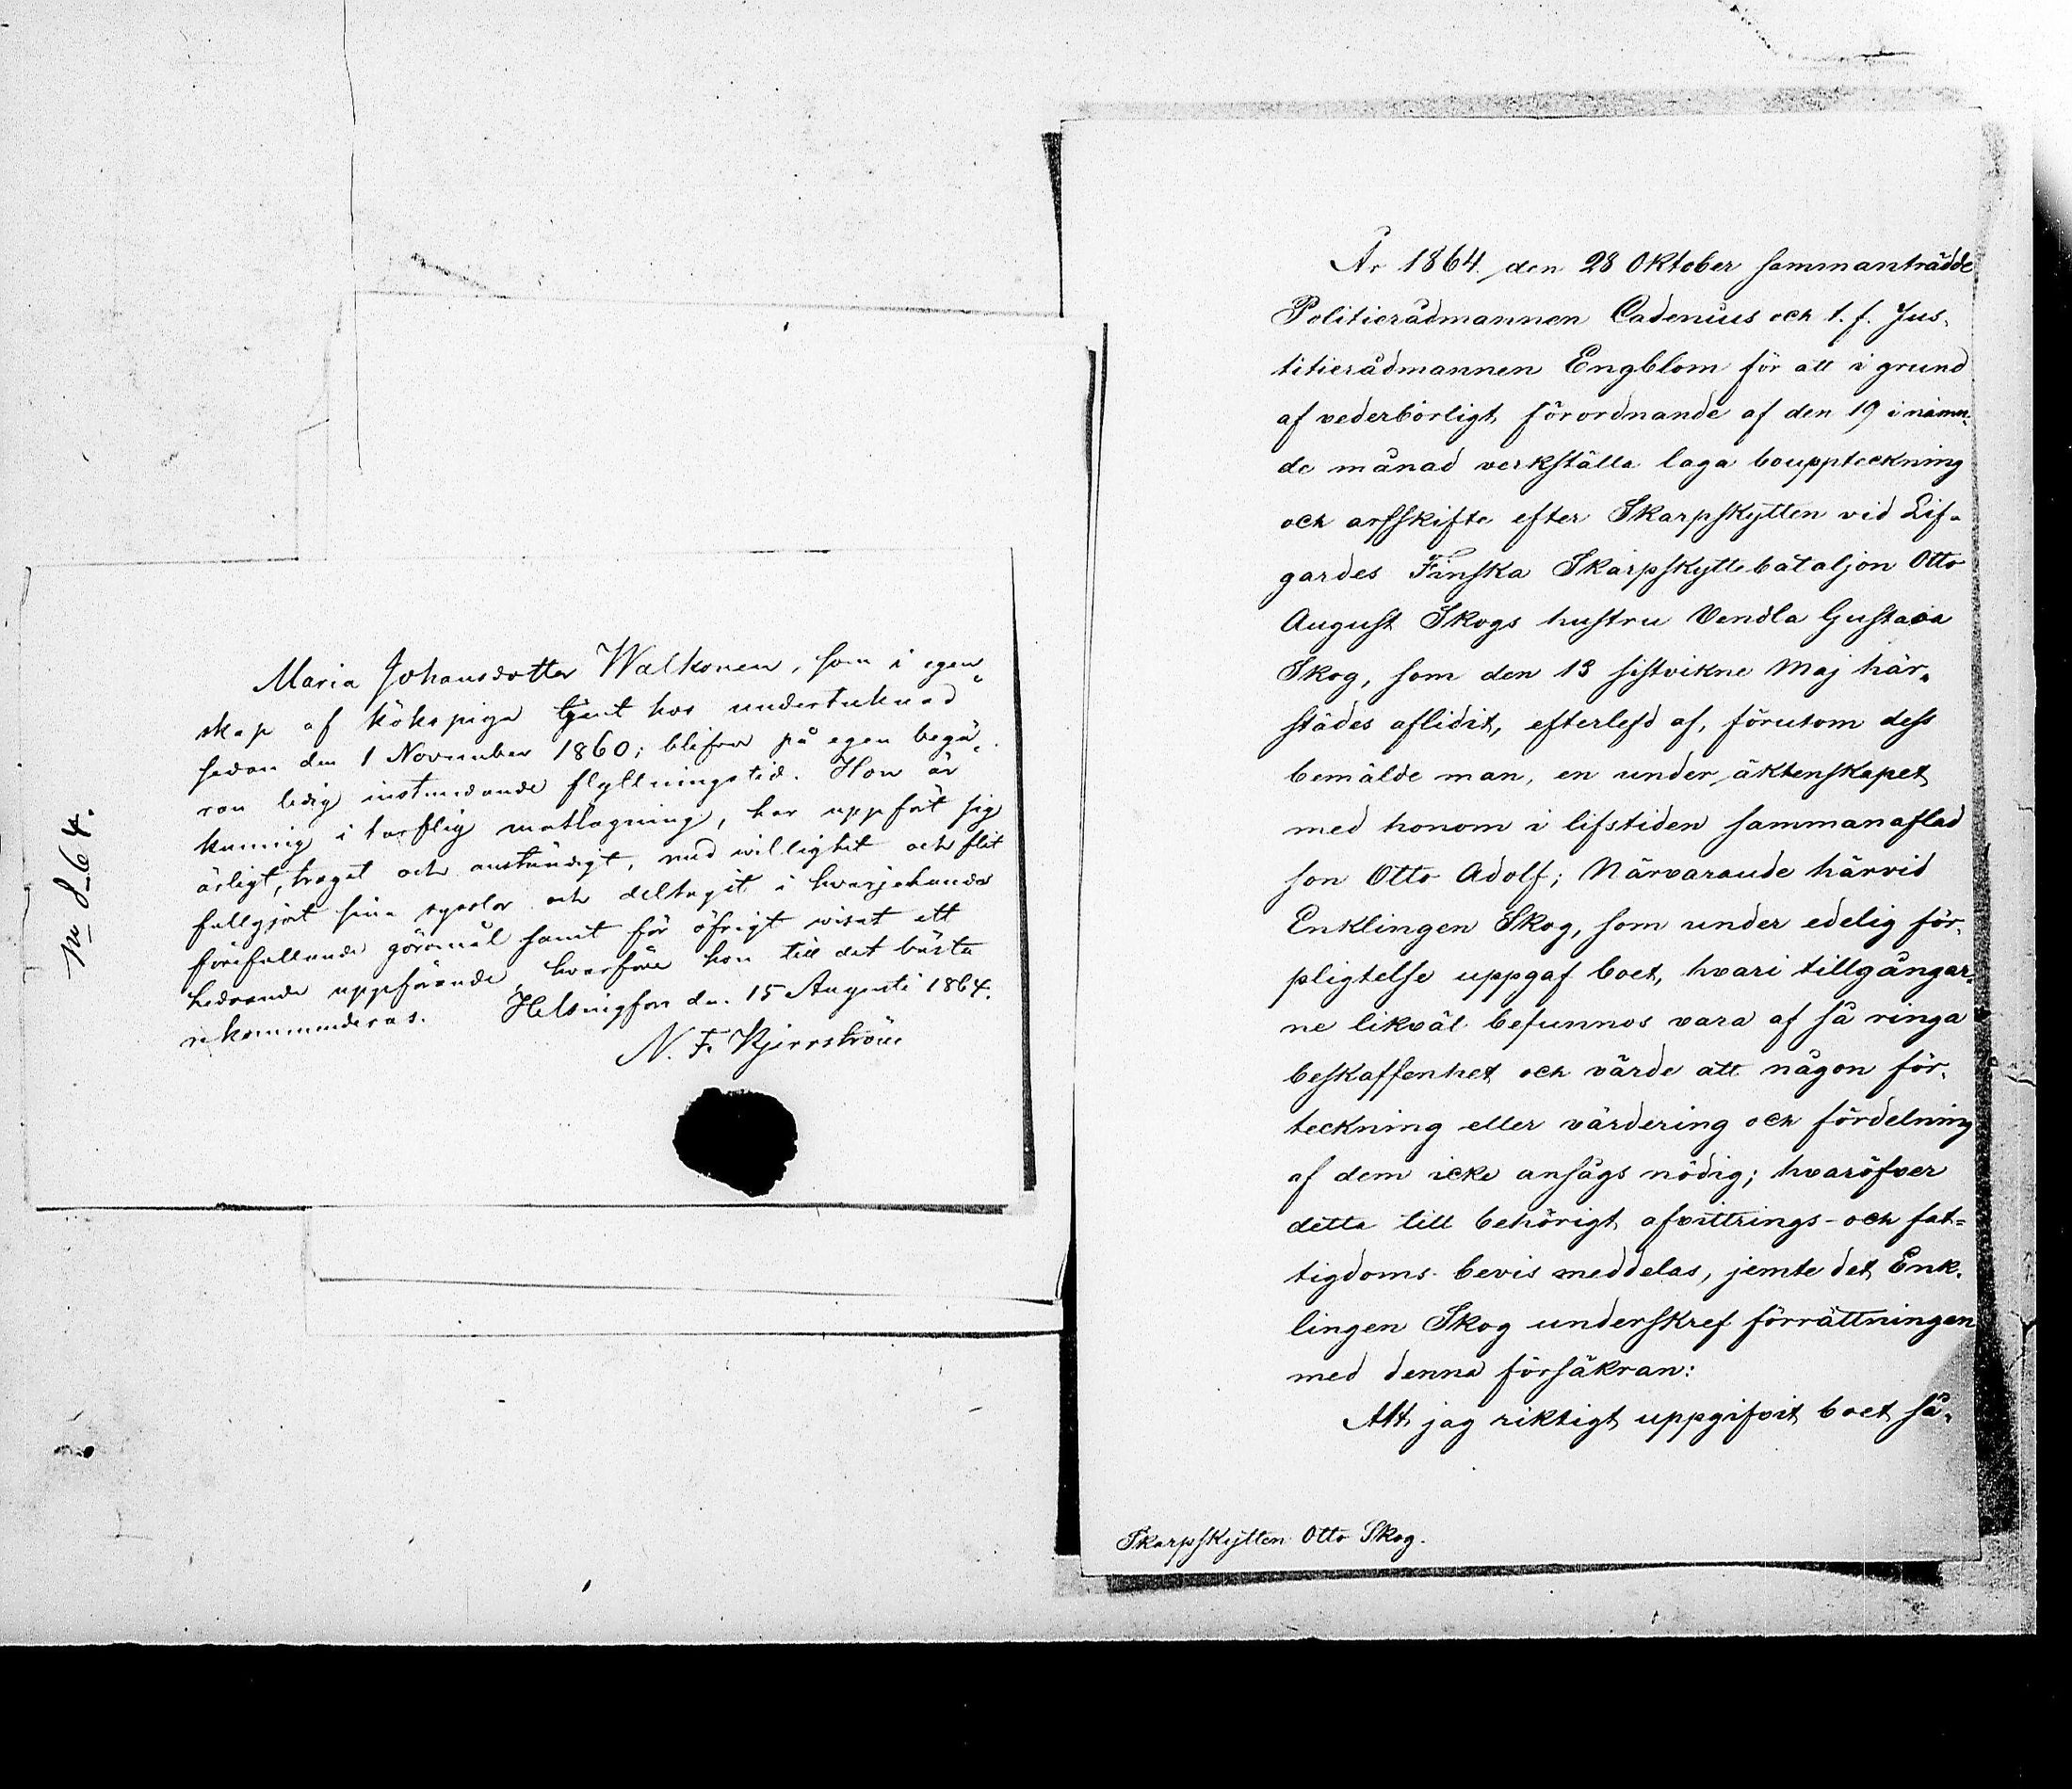 Maria Johansdotter Walkonen, som i egen
skap af kökspiga tjent hos undertecknad
sedan den 1 November 1860; blifver på egen begä
ran ledig instundande flyttningstid. Hon är
kunnig i tarflig matlagning, har uppfört sig
ärligt, troget och anständigt, med willighet och flit
fullgjort sina sysslor och deltagit i hvarjehanda
förefallande göromål samt för öfrigt wisat ett
hedrande uppförande, hvarföre hon till det bästa
rekommenderas. Helsingfors den 15 Augusti 1864.
N. F.
№ 864.
År 1864 den 28 Oktober sammanträdde
Politierådmannen Cadenius och t. f. Jus-
titierådmannen Engblom för att i grund
af vederbörligt förordnande af den 19 i nämn-
de månad verkställa laga bouppteckning
och arfskifte efter Skarpskytten vid Lif-
gardes Finska Skarpskyttebataljon Otto
August Skogs hustru Vendla Gustava
Skog, som den 13 sistvikne Maj här-
städes aflidit, efterlefd af, förutom dess
bemälde man, en under äktenskapet
med honom i lifstiden sammanaflad
son Otto Adolf; Närvarande härvid
Enklingen Skog, som under edelig för-
pligtelse uppgaf boet, hvari tillgångar-
ne likväl befunnos vara af så ringa
beskaffenhet och värde att någon för-
teckning eller värdering och fördelning
af dem icke ansågs nödig; hvaröfver
detta till behörigt afvittrings- och fat-
tigdoms-bevis meddelas, jemte det Enk-
lingen Skog underskref förrättningen
med denna försäkran:
Att jag riktigt uppgifvit boet så-
Skarpskytten Otto Skog.